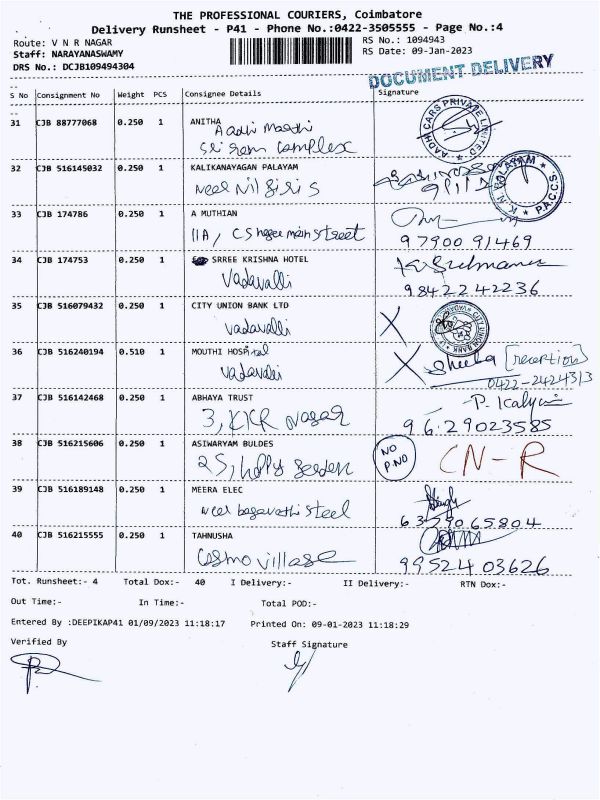 THE PROFESSIONAL COURIERS, Coimbatore
Delivery Runsheet - P41 - Phone No.:0422-3505555 - Page No.:4
Route: V N R NAGAR
RS No.: 1094943
Staff: NARAYANASWAMY
RS Date: 09-Jan-2023
DRS No.: DCJB109494304
DOCUMENT DELIVERY
S No Consignment No Weight PCS Consignee Details Signature
31 CJB 88777068 0.250 1 ANITHA
Sri ram complex
AADHI CARS PRIVATE LIMITED
32 CJB 516145032 0.250 1 KALIKANAYAGAN PALAYAM
Near Nilgiri s
K.N. PALAYAM P.A.C.C.S.
33 CJB 174786 0.250 1 A MUTHIAN
11A, main street
97900 91469
34 CJB 174753 0.250 1 SRREE KRISHNA HOTEL
Vadavalli
98422 42236
35 CJB 516079432 0.250 1 CITY UNION BANK LTD
Vadavalli X
36 CJB 516240194 0.510 1 MOUTHI HOSPITAL
Vadavalli X Sheeba [reception]
0422-2424313
37 CJB 516142468 0.250 1 ABHAYA TRUST
3, KKR Nagar
P. Kalyani
96 29023585
38 CJB 516215606 0.250 1 ASIWARYAM BULDES
25, NO P.NO CN-R
39 CJB 516189148 0.250 1 MEERA ELEC
Near bagavathi steel
6379065804
40 CJB 516215555 0.250 1 TAHNUSHA
Cosmo village
99524 03626
Tot. Runsheet:- 4 Total Dox:- 40 I Delivery:- II Delivery:- RTN Dox:-
Out Time:- In Time:- Total POD:-
Entered By :DEEPIKAP41 01/09/2023 11:18:17 Printed On: 09-01-2023 11:18:29
Verified By Staff Signature